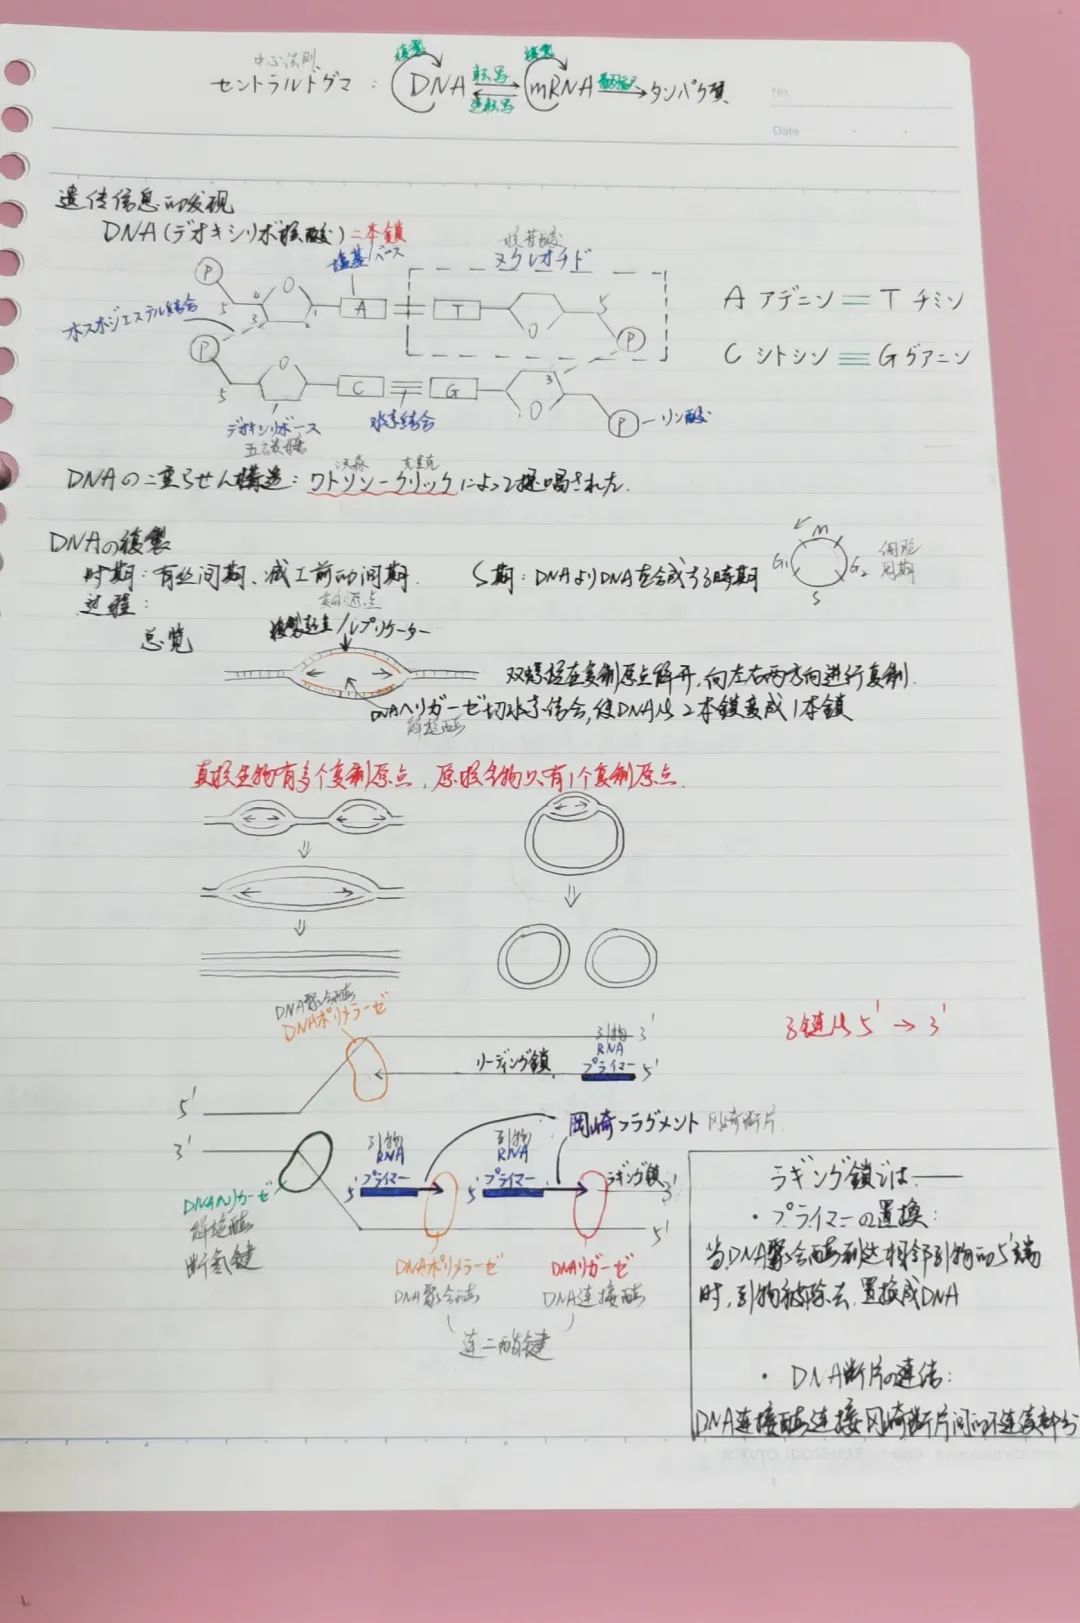 中心法则
セントラルドグマ：DNA 転写 逆転写 mRNA 翻訳 タンパク質
複製 複製
No.
Date
遗传信息的发现
DNA(デオキシリボ核酸)二本鎖
塩基/ベース
核苷酸
ヌクレオチド
P 5 4 O 3 2 1 A T O 5 P
A アデニン＝T チミン
ホスホジエステル結合
C シトシン≡G グアニン
P 5 O C G 3 O P リン酸
デオキシリボース
五碳糖
水素結合
沃森 克里克
DNAの二重らせん構造：ワトソンークリックによって提唱された.
DNAの複製
时期：有丝间期、减Ⅰ前的间期.
S期：DNAよりDNAを合成する時期
M G₁ G₂ S
细胞
周期
过程：
总览
复制原点
複製起点/レプリケーター
双螺旋在复制原点解开,向左右两方向进行复制.
DNAヘリカーゼ切水素结合,使DNA从2本鎖変成1本鎖
解旋酶
真核生物有多个复制原点,原核生物只有1个复制原点.
DNA聚合酶
DNAポリメラーゼ
子链从5'→3'
引物 3'
RNA
リーディング鎖 プライマー 5'
5'
3'
岡崎フラグメント 冈崎断片
引物 引物
RNA RNA
5' プライマー 5' プライマー ラギング鎖 3'
5'
DNAヘリカーゼ
解旋酶
断氢键
DNAポリメラーゼ DNAリガーゼ
DNA聚合酶 DNA连接酶
连二酯键
ラギング鎖では——
・プライマーの置換：
当DNA聚合酶到达相邻引物的5'端
时,引物被除去,置换成DNA
・DNA断片の連結：
DNA连接酶连接冈崎断片间的不连续部分